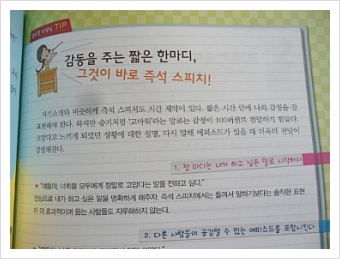 TIP
감동을 주는 짧은 한마디,
그것이 바로 즉석 스피치!
자기소개와 비슷하게 즉석 스피치도 시간 제약이 있다. 짧은 시간 안에 나의 감정을 잘
표현해야 한다. 하지만 슬기처럼 '고마워'라는 말로는 감정이 100퍼센트 전달하기 힘들다.
고맙다고 느끼게 되었던 상황에 대한 설명, 다시 말해 에피소드가 있을 때 더욱더 전달이
강렬해진다.
1. 첫 마디는 내가 하고 싶은 말로 시작하라
"얘들아, 너희들 모두에게 정말로 고맙다는 말을 전하고 싶다."
진심으로 내가 하고 싶은 말을 명확하게 해주자. 즉석 스피치에서는 돌려서 말하기보다는 솔직한 표현
이 더 효과적이며 듣는 사람들도 지루해하지 않는다.
2. 다른 사람들이 공감할 수 있는 에피소드를 포함시킨다